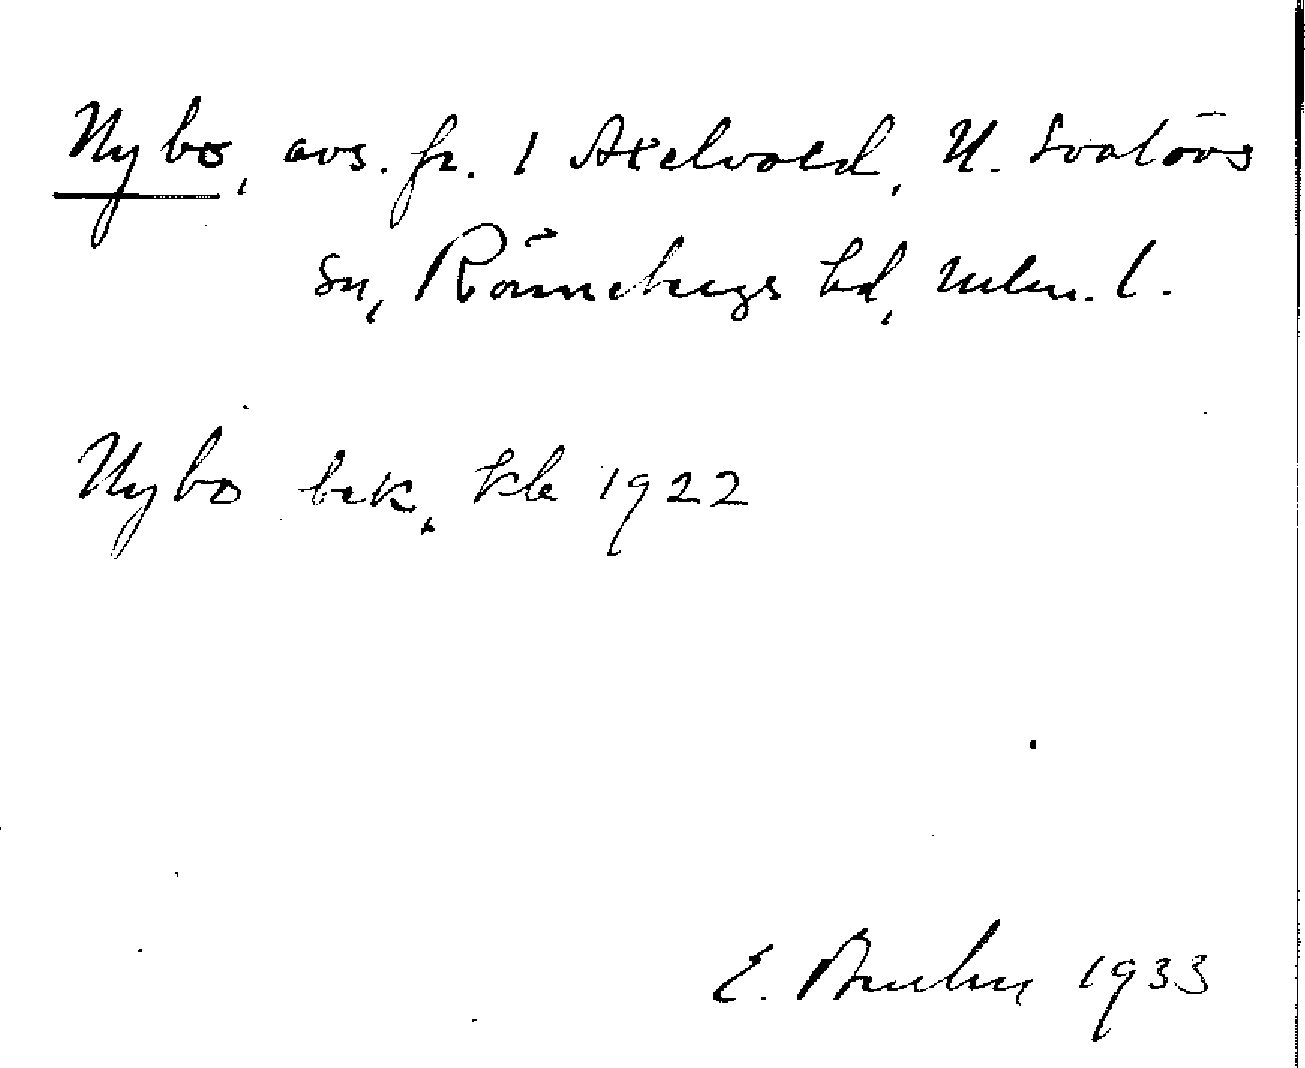 Nybo, avs. fr. 1 Axelvold, N. Svalövs
sn, Rönnebergs hd, Mlm. l.
Nybo bek, kb 1922
E. 1933